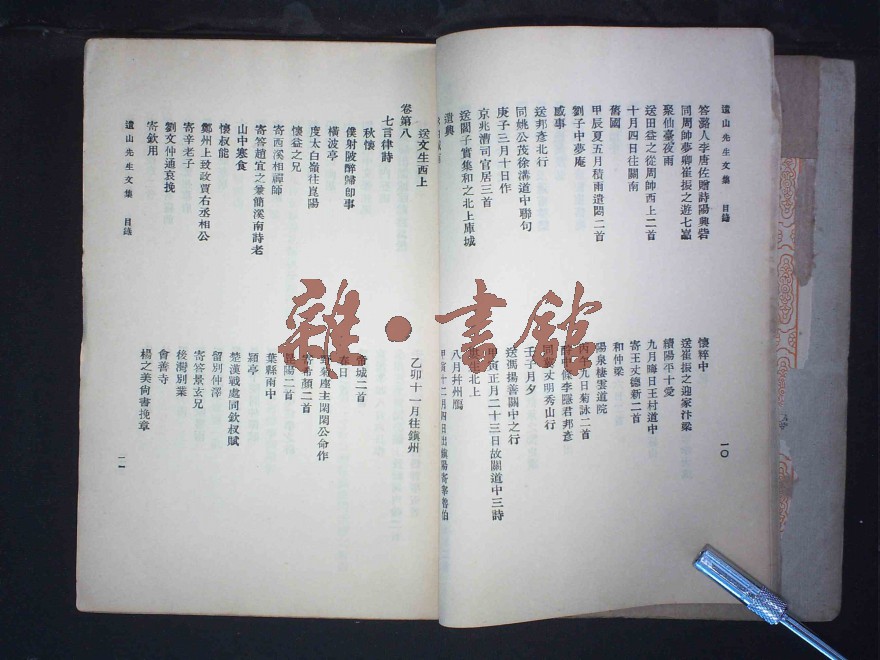 遺山先生文集　目錄
答潞人李唐佐贈詩陽興砦
同周帥夢卿崔振之遊七巖
聚仙臺夜雨
送田益之從周帥西上二首
十月四日往關南
舊國
甲辰夏五月積雨遣悶二首
劉子中夢庵
感事
送邦彥北行
同姚公茂徐溝道中聯句
庚子三月十日作
京兆漕司官居三首
送閻子實集和之北上庫城
遣興
懷粹中
送崔振之迎家汴梁
續陽平十愛
九月晦日王村道中
寄王丈德新二首
和仲梁
陽泉棲雲道院
九日菊詠二首
李隱君邦彥
丈明秀山行
壬子月夕
送馮揚善關中之行
甲寅正月二十三日故關道中三詩
北上
八月幷州鴈
甲寅十二月四日出鎮陽寄
一〇
送文生西上
卷第八
七言律詩
秋懷
僕射陂醉歸卽事
橫波亭
度太白嶺往崑陽
懷益之兄
寄西溪相禪師
寄答趙宜之兼簡溪南詩老
山中寒食
懷叔能
鄭州上致政賈右丞相公
寄辛老子
劉文仲通哀挽
寄欽用
遺山先生文集　目錄
乙卯十一月往鎮州
帝城二首
春日
野菊座主閑閑公命作
寄希顏二首
昆陽二首
葉縣雨中
潁亭
楚漢戰處同欽叔賦
留別仲澤
寄答景玄兄
後灣別業
會善寺
楊之美尙書挽章
一一
雜·書館